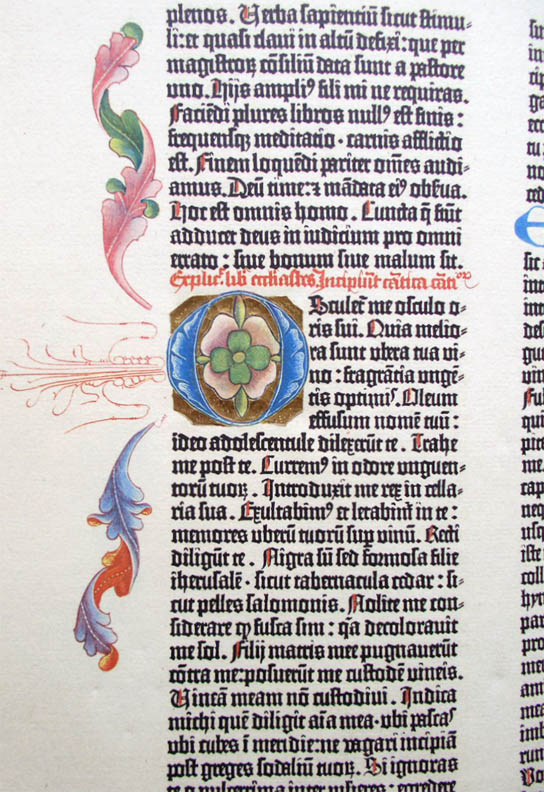 plenos. Verba sapientiū sicut stimu-
li: et quasi clavi in altū defixi: que per
magistroꝝ cōsiliū data sunt a pastore
uno. Hijs ampliꝰ fili mi ne requiras.
Faciēdi plures libros nullꝰ est finis:
frequensqꝫ meditacio · carnis afflictio
est. Finem loquēdi pariter om̄es audi-
amus. Deū time: ⁊ mādata eiꝰ obs̄ua.
Hoc est omnis homo. Cuncta q̄ fiūt
adducet deus in iudicium pro omni
errato : sive bonum sive malum sit.
Explic̄. lib̄ eccl̄iastes Incipiūt cātica cāticoꝝ
Osculet̄ me osculo o-
ris sui. Quia melio-
ra sunt ubera tua vi-
no : fragrācia ungē-
tis optimis. Oleum
effusum nomē tuū :
ideo adolescentule dilexerūt te. Trahe
me post te. Curremꝰ in odore unguen-
torū tuoꝝ. Introduxit me rex in cella-
ria sua. Exultabimꝰ et letabimur in te :
memores uberū tuorū sup̄ vinū. Recti
diligūt te. Nigra sū sed formosa filie
iherusalē · sicut tabernacula cedar : si-
cut pelles salomonis. Nolite me con-
siderare ꝙ fusca sim : q̄a decoloravit
me sol. Filij matris mee pugnaverūt
cōtra me: posuerūt me custodē vineis.
Vineā meam nō custodivi. Indica
michi quē diligit aīa mea · ubi pascas
ubi cubes ī meridie: ne vagari incipiā
post greges sodaliū tuoꝝ. Si ignoras
te o pulcerrima inter mulieres: egredere